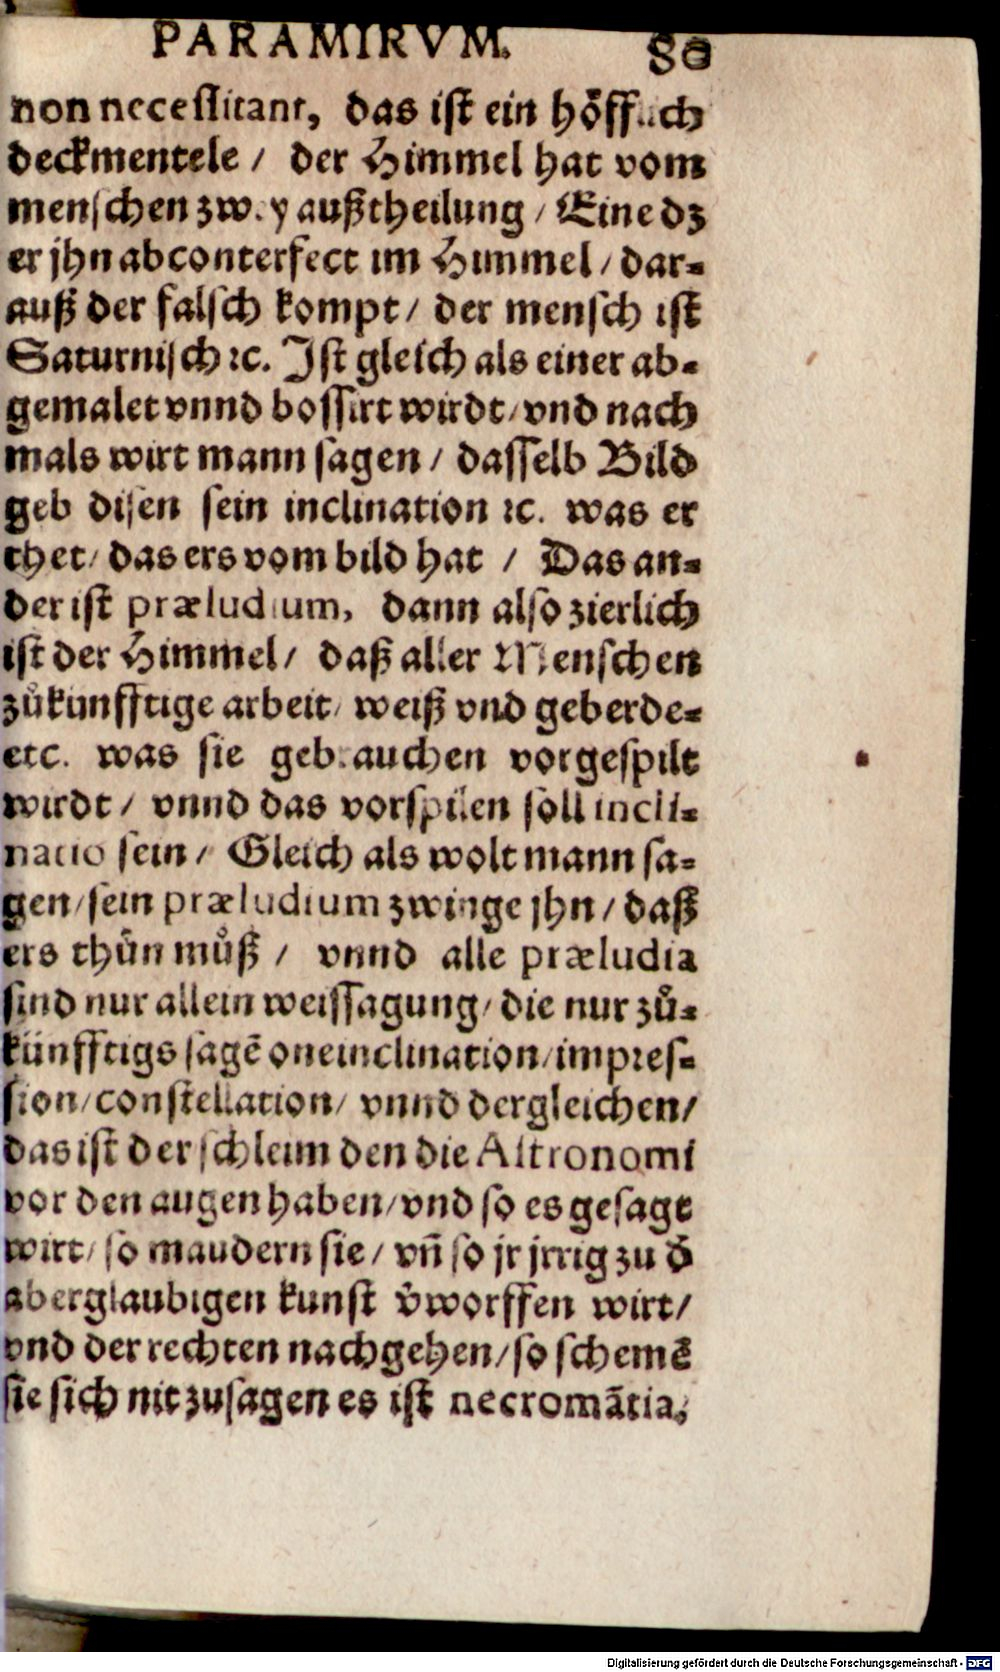 PARAMIRVM. 80
non necessitant, das ist ein höfflich
deckmentele / der Himmel hat vom
menschen zwey außtheilung / Eine dz
er jhn abconterfect im Himmel / dar-
auß der falsch kompt / der mensch ist
Saturnisch ꝛc. Ist gleich als einer ab-
gemalet vnnd bossirt wirdt / vnd nach
mals wirt mann sagen / dasselb Bild
geb disen sein inclination ꝛc. was er
thet / das ers vom bild hat / Das an-
der ist præludium, dann also zierlich
ist der Himmel / daß aller Menschen
zůkünfftige arbeit / weiß vnd geberde-
etc. was sie gebrauchen vorgespilt
wirdt / vnnd das vorspilen soll incli-
natio sein / Gleich als wolt mann sa-
gen / sein præludium zwinge jhn / daß
ers thůn můß / vnnd alle præludia
sind nur allein weissagung / die nur zů-
künfftigs sagē one inclination / impres-
sion / constellation / vnnd dergleichen /
das ist der schleim den die Astronomi
vor den augen haben / vnd so es gesagt
wirt / so maudern sie / vn̄ so jr jrrig zu d̕
aberglaubigen kunst v̕worffen wirt /
vnd der rechten nachgehen / so schemē
sie sich nit zusagen es ist necromātia,
Digitalisierung gefördert durch die Deutsche Forschungsgemeinschaft - DFG